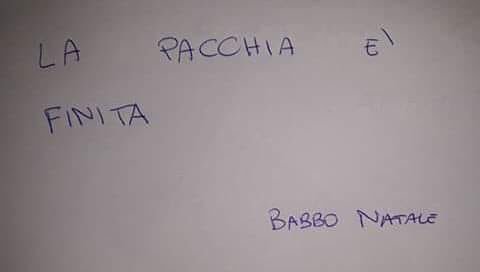 LA PACCHIA E'
FINITA
BABBO NATALE